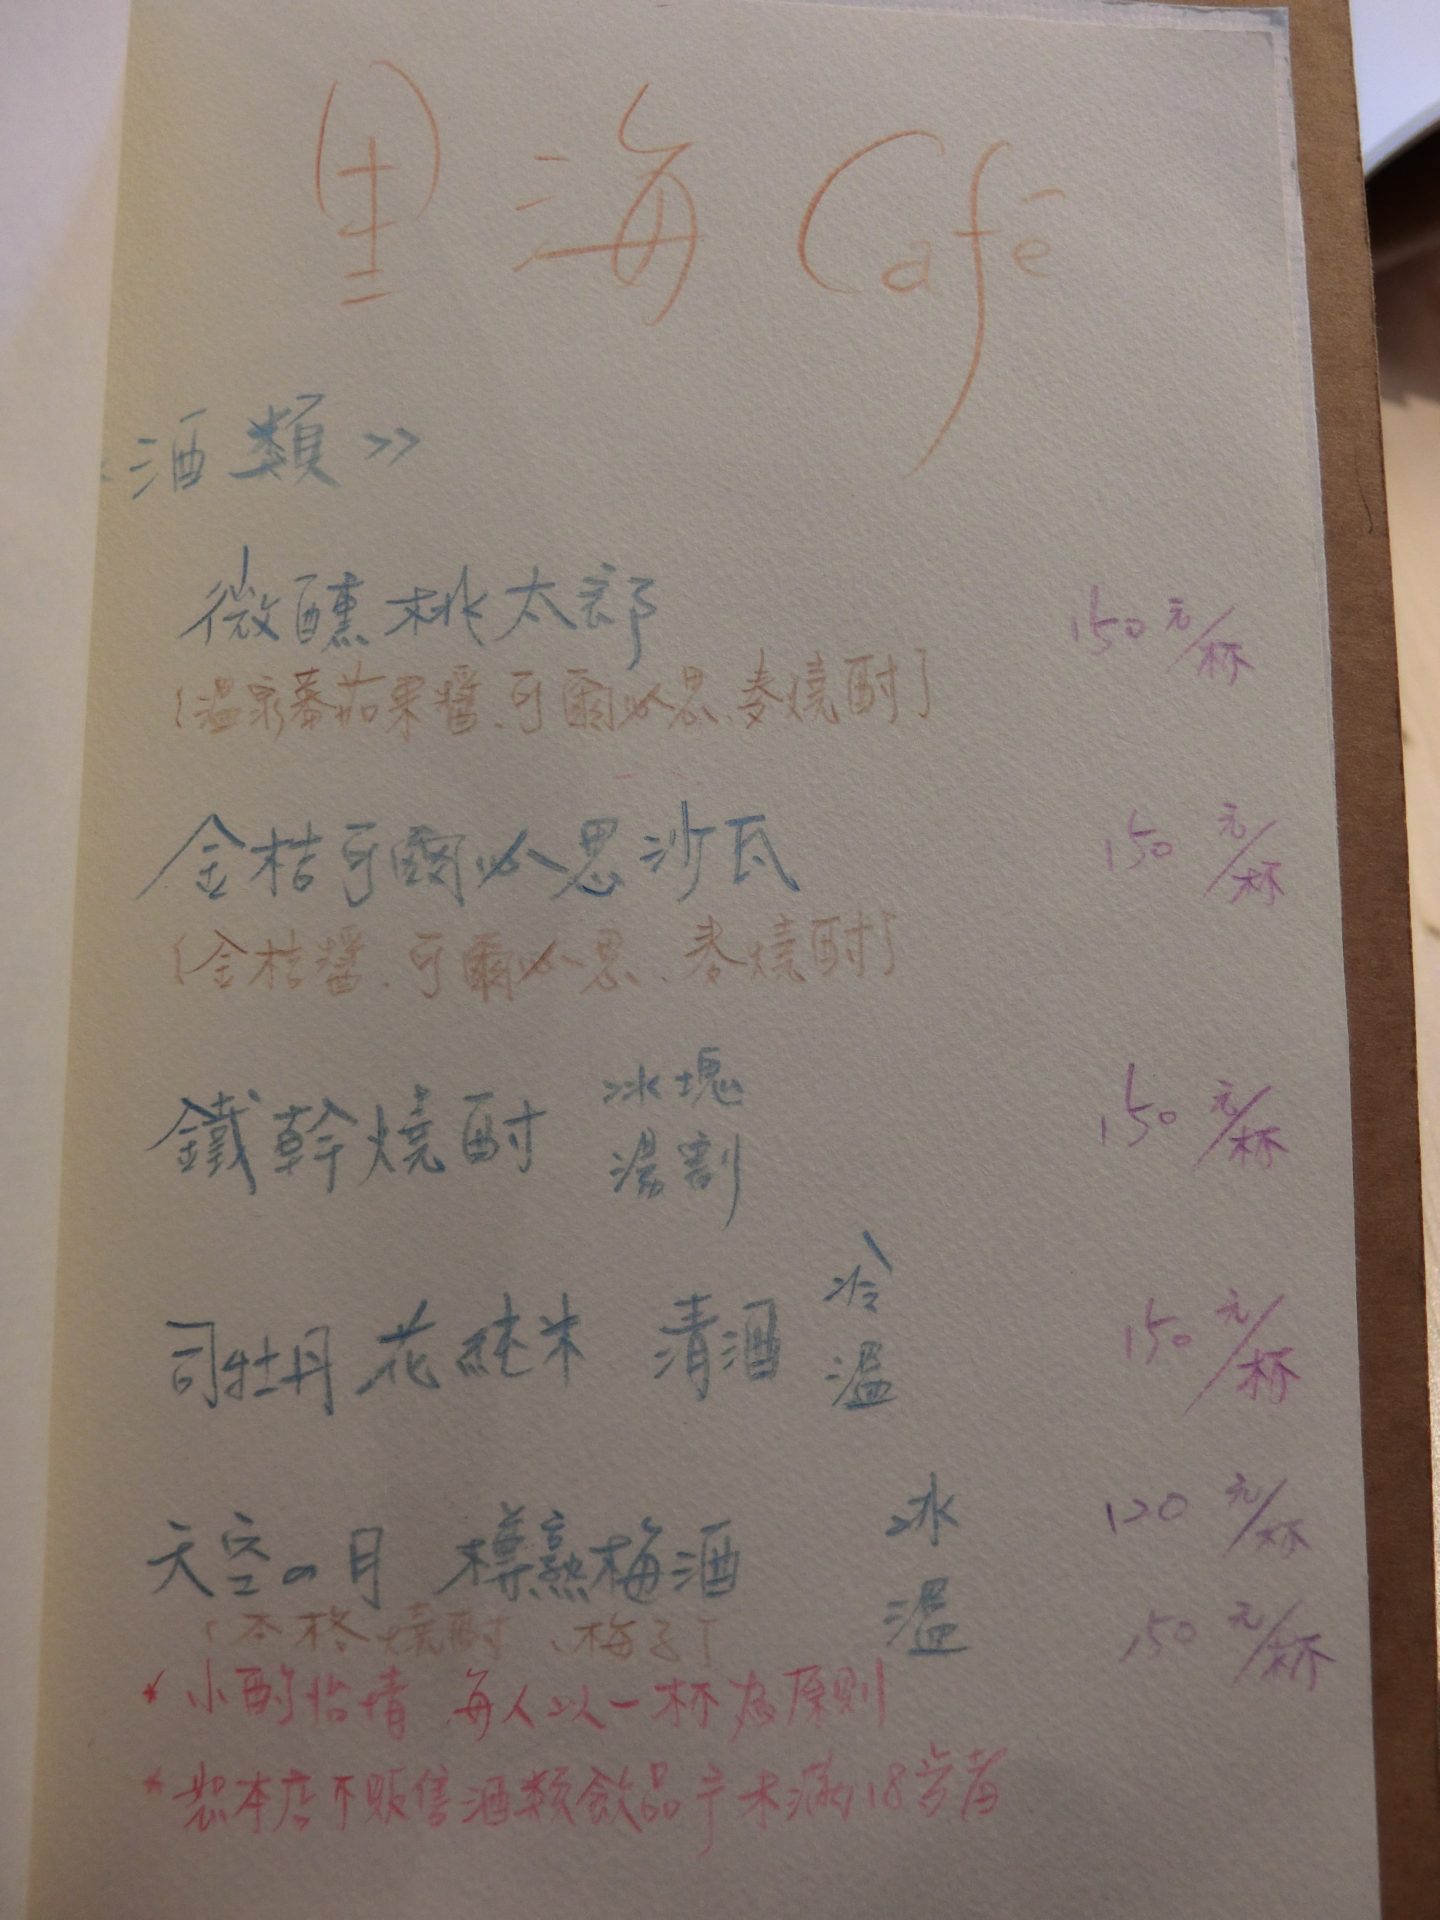 里海 Café
酒類》
微醺桃太郎 150元/杯
(溫泉蕃茄果醬、可爾必思、麥燒酎)
金桔可爾必思沙瓦 150元/杯
(金桔醬、可爾必思、麥燒酎)
鐵幹燒酎 冰塊 湯割 150元/杯
司牡丹 花純米 清酒 冷 溫 150元/杯
天空の月 樽熟梅酒 冰 120元/杯
溫 150元/杯
(本格燒酎、梅子)
* 小酌怡情 每人以一杯為原則
* 本店不販售酒類飲品于未滿18歲者